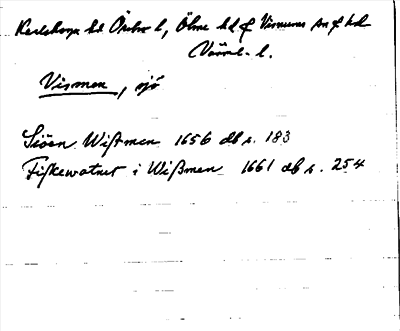 Karlskoga hd Örebro l, Ölme hd o Visnums sn o hd
Värml. l.
Vismen, sjö
Siöen Wissmen 1656 db s. 183
Fiskewatnet i Wißmen 1661 db s. 254